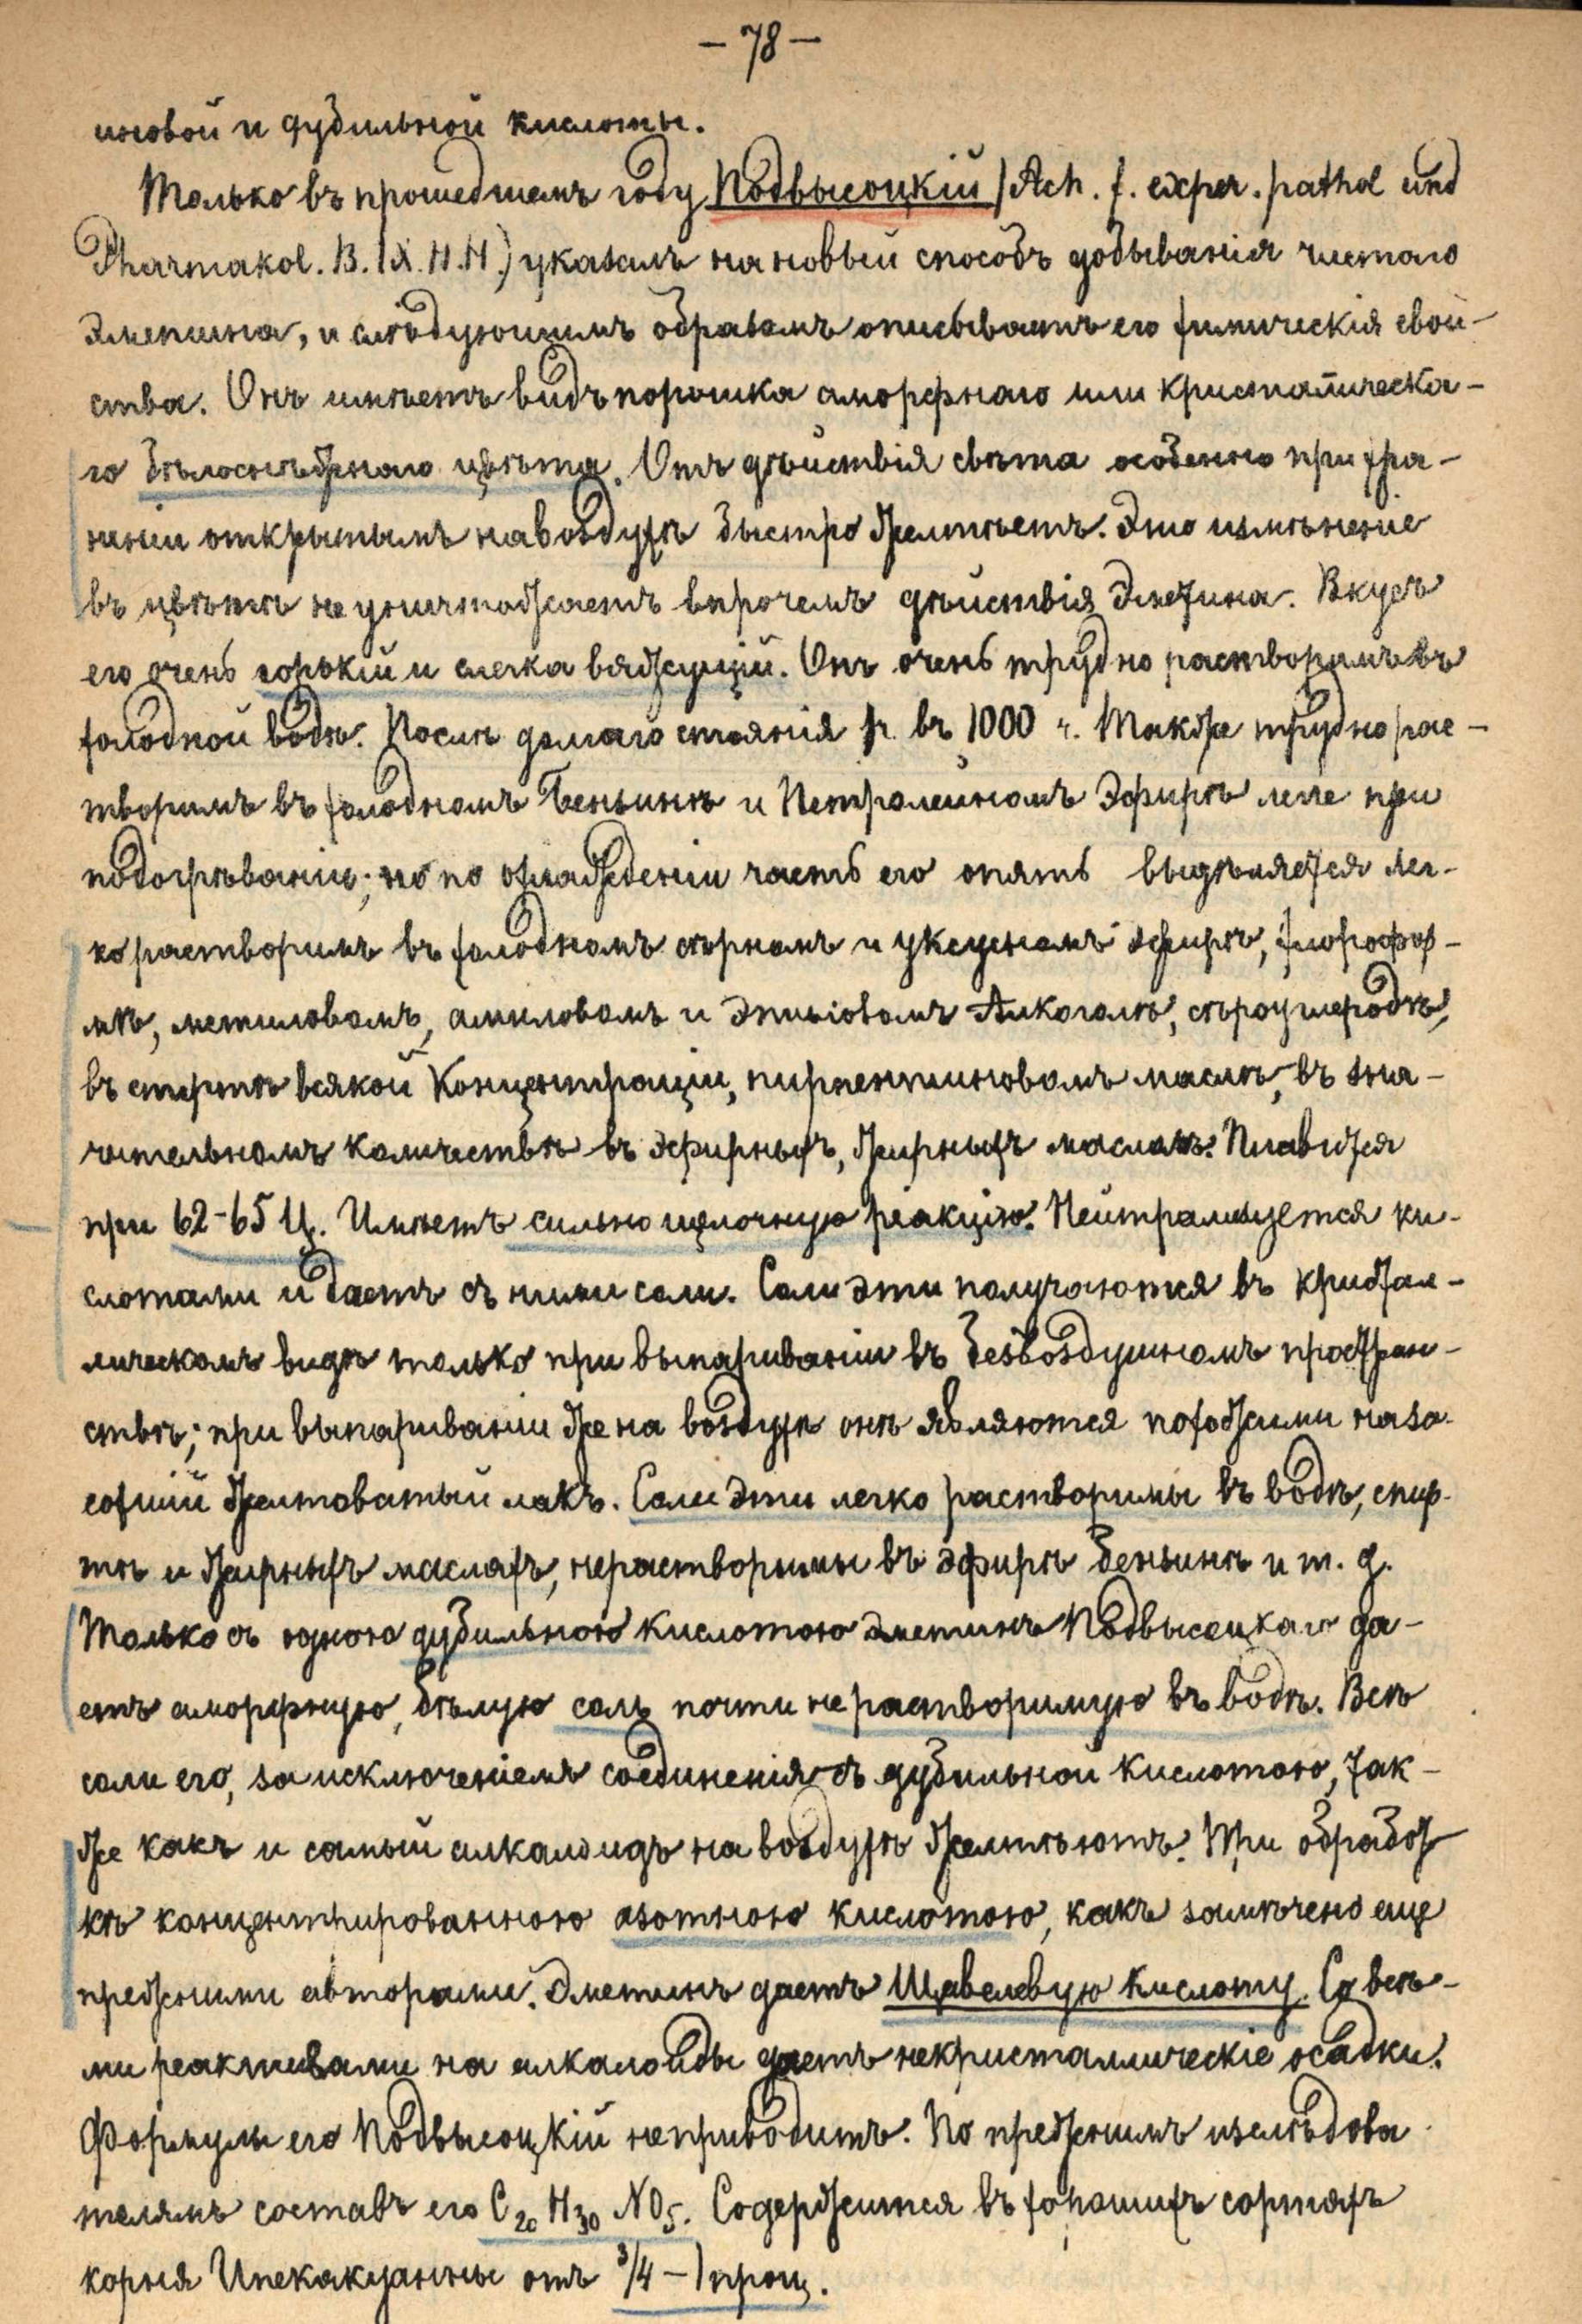 — 78 —
иновой и дубильной кислоты.
Только въ прошедшемъ году Подвысоцкій (Ach. f. exper. pathol und
Pharmakol. B. IX. H.H.) указалъ на новый способъ добыванія чистаго
Эметина, и слѣдующимъ образомъ описываетъ его химическія свой-
ства. Онъ имѣетъ видъ порошка аморфнаго или кристаллическа-
го бѣлоснѣжнаго цвѣта. Отъ дѣйствія свѣта особенно при хра-
неніи открытымъ на воздухѣ быстро желтѣетъ. Это измѣненіе
въ цвѣтѣ не уничтожаетъ впрочемъ дѣйствія Эметина. Вкусъ
его очень горькій и слегка вяжущій. Онъ очень трудно растворимъ въ
холодной водѣ. После долгаго стоянія 1 въ 1000 ч. Также трудно рас-
творимъ въ холодномъ Бензинѣ и Петролейномъ Эфирѣ легче при
подогрѣваніи; но по охлажденіи часть его опять выдѣляется Лег-
ко растворимъ въ холодномъ сѣрномъ и уксусномъ эфирѣ, хлорофор-
мѣ, метиловомъ, амиловомъ и Этиловомъ Алкоголѣ, сѣроуглеродѣ,
въ спиртѣ всякой Концентраціи, пирпентиновомъ маслѣ, въ зна-
чительномъ количествѣ въ эфирныхъ, жирныхъ маслахъ. Плавится
при 62-65 Ц. Имѣетъ сильно щелочную реакцію. Нейтрализуется ки-
слотами и даетъ съ ними соли. Соли эти получаются въ кристал-
лическомъ видѣ только при выпариваніи въ безвоздушномъ простран-
ствѣ; при выпариваніи же на воздухѣ онѣ являются похожими на за-
сохшій желтоватый лакъ. Соли эти легко растворимы въ водѣ, спир-
тѣ и жирныхъ маслахъ, нерастворимы въ эфирѣ бензинѣ и т. д.
Только съ одною дубильною кислотою эметинъ Подвысоцкаго да-
етъ аморфную, бѣлую соль почти не растворимую въ водѣ. Всѣ
соли его, за исключеніемъ соединенія съ дубильной кислотою, так-
же какъ и самый алкалоидъ на воздухѣ желтѣютъ. При обработ
кѣ концентрированною азотною кислотою, какъ замѣчено еще
прежними авторами. Эметинъ даетъ Щавелевую кислоту. Со всѣ-
ми реактивами на алкалоиды даетъ некристаллическіе осадки.
Формулы его Подвысоцкій неприводитъ. По прежнимъ изслѣдова
телямъ составъ его C20 H30 NO5. Содержится въ хорошихъ сортахъ
корня Ипекакуанны отъ 3/4 — 1 проц.